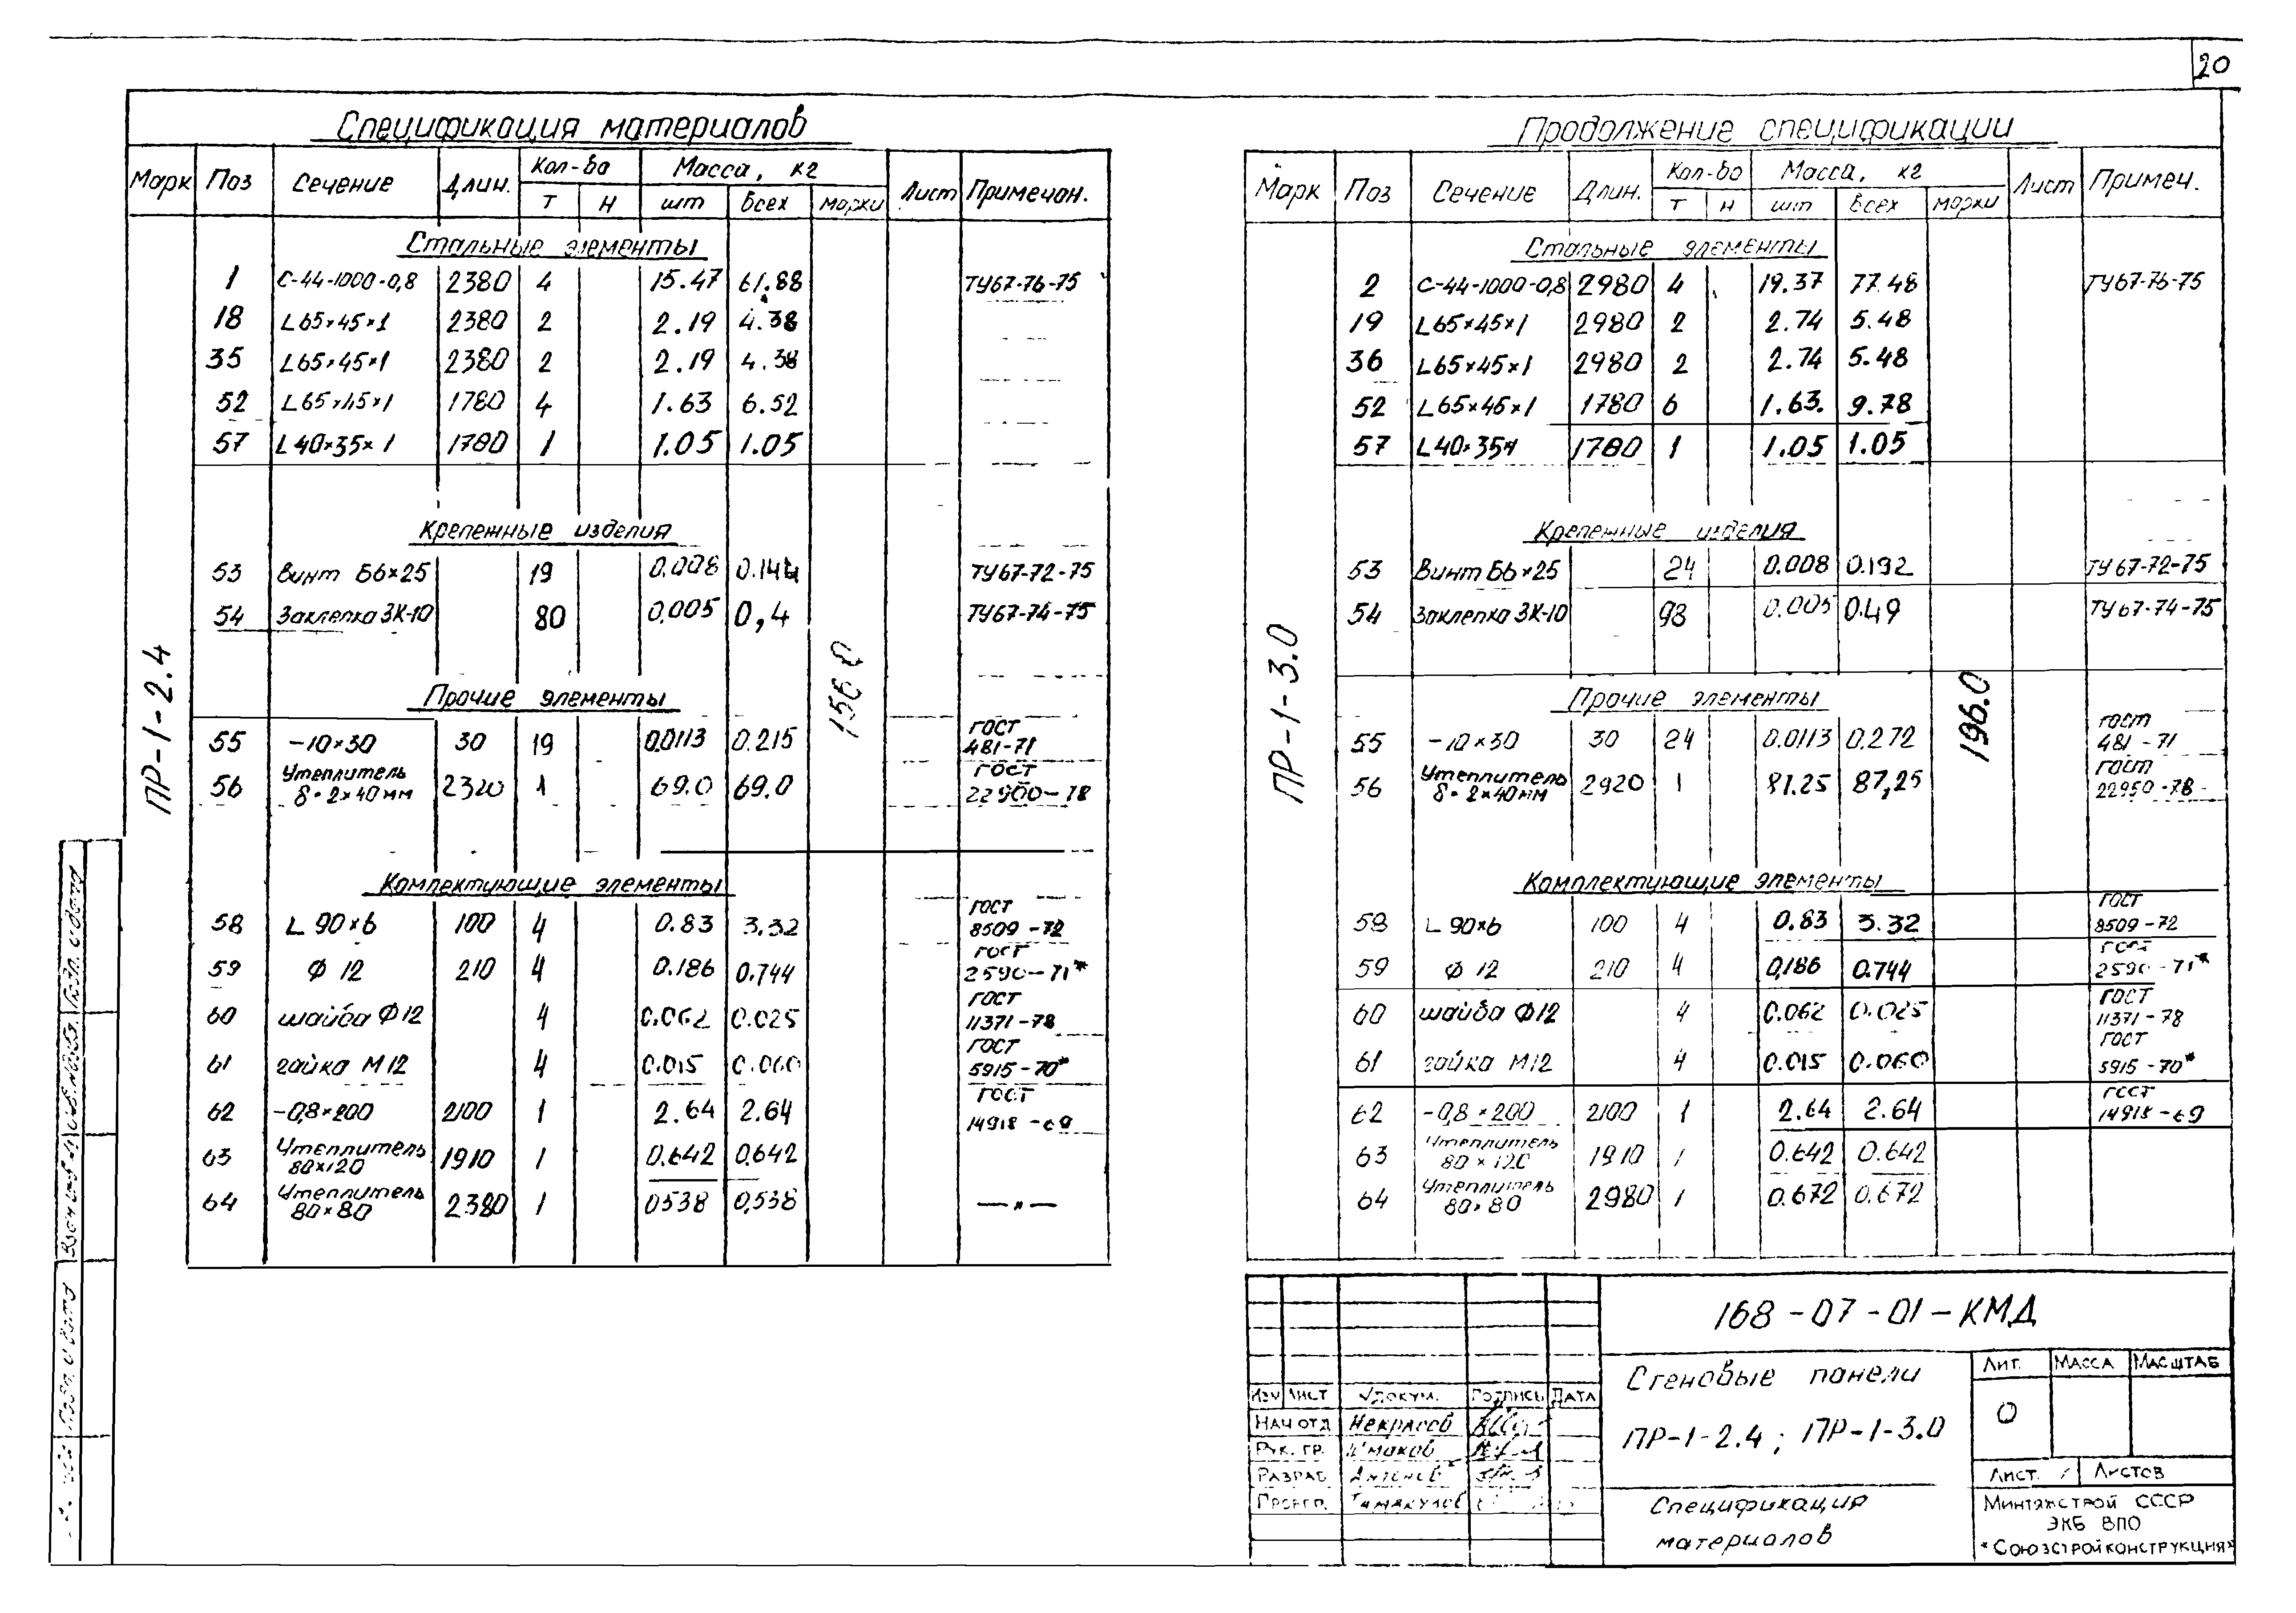 20
Спецификация материалов
Марк Поз Сечение Длин. Кол-во Масса, кг Лист Примечан.
т н шт всех марки
Стальные элементы
1 С-44-1000-0,8 2380 4 15.47 61.88 ТУ67-76-75
18 L65×45×1 2380 2 2.19 4.38
35 L65×45×1 2380 2 2.19 4.38
52 L65×45×1 1780 4 1.63 6.52
57 L40×35×1 1780 1 1.05 1.05
Крепежные изделия
53 Винт Б6×25 19 0.008 0.144 ТУ67-72-75
54 Заклепка ЗК-10 80 0.005 0,4 ТУ67-74-75
ПР-1-2.4
156.0
Прочие элементы
55 -10×30 30 19 0.0113 0.215 ГОСТ 481-71
56 Утеплитель δ=2×40мм 2320 1 69.0 69.0 ГОСТ
Комплектующие элементы
58 L 90×6 100 4 0.83 3.32 ГОСТ 8509-72
59 Ф 12 210 4 0.186 0.744 ГОСТ 2590-71*
60 шайба Ф12 4 0.062 0.025 ГОСТ 11371-78
61 гайка М12 4 0.015 0.060 ГОСТ 5915-70*
62 -0,8×200 2100 1 2.64 2.64 ГОСТ 14918-69
63 Утеплитель 80×120 1910 1 0.642 0.642
64 Утеплитель 80×80 2380 1 0538 0,538 —"—
Продолжение спецификации
Марк Поз Сечение Длин. Кол-во Масса, кг Лист Примеч.
т н шт всех марки
Стальные элементы
2 С-44-1000-0,8 2980 4 19.37 77.48 ТУ67-76-75
19 L65×45×1 2980 2 2.74 5.48
36 L65×45×1 2980 2 2.74 5.48
52 L65×45×1 1780 6 1.63. 9.78
57 L40×35×1 1780 1 1.05 1.05
Крепежные изделия
53 Винт Б6×25 24 0.008 0.192 ТУ67-72-75
54 Заклепка ЗК-10 98 0.005 0.49 ТУ67-74-75
ПР-1-3.0
196.0
Прочие элементы
55 -10×30 30 24 0.0113 0.272 ГОСТ 481-71
56 Утеплитель δ=2×40мм 2920 1 81.25 87,25 ГОСТ 22950-78
Комплектующие элементы
58 L 90×6 100 4 0.83 3.32 ГОСТ 8509-72
59 Ф 12 210 4 0,186 0.744 ГОСТ 2590-71*
60 шайба Ф12 4 0.062 0.025 ГОСТ 11371-78
61 гайка М12 4 0.015 0.060 ГОСТ 5915-70*
62 -0,8×200 2100 1 2.64 2.64 ГОСТ 14918-69
63 Утеплитель 80×120 1910 1 0.642 0.642
64 Утеплитель 80×80 2980 1 0.672 0.672
168-07-01-КМД
Стеновые панели
ПР-1-2.4; ПР-1-3.0
Спецификация
материалов
Лит. Масса Масштаб
О
Лист 1 Листов
Минтяжстрой СССР
ЭКБ ВПО
"Союзстройконструкция"
Изм Лист №докум. Подпись Дата
Нач отд Некрасов
Рук. гр.
Разраб